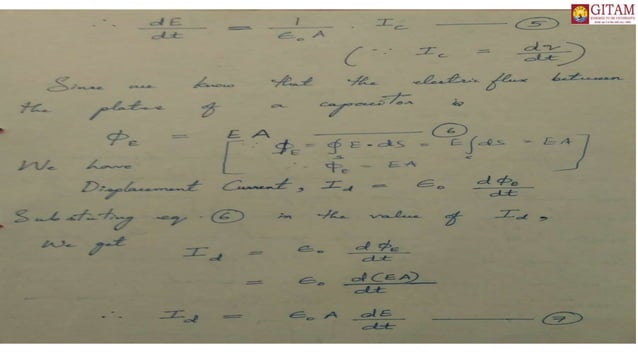 GITAM
∴ dE/dt = 1/ε₀A I_c —— ⑤
(∵ I_c = dq/dt)
Since we know that the electric flux between
the plates of a capacitor is
Φ_E = EA —— ⑥
[∵ Φ_E = ∮_s E • ds = E∫_s ds = EA
∴ Φ_E = EA]
We have
Displacement Current, I_d = ε₀ dΦ_E/dt
Substuting eq. ⑥ in the value of I_d,
We get I_d = ε₀ dΦ_E/dt
= ε₀ d(EA)/dt
∴ I_d = ε₀ A dE/dt —— ⑦